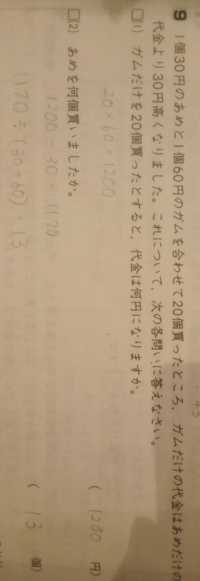 9 1個30円のあめと1個60円のガムを合わせて20個買ったところ，ガムだけの代金はあめだけの
代金より30円高くなりました。これについて，次の各問いに答えなさい。
□(1) ガムだけを20個買ったとすると，代金は何円になりますか。
20×60=1200
( 1200 円)
□(2) あめを何個買いましたか。
1200-30=1170
1170÷(30+60)=13
( 13 個)